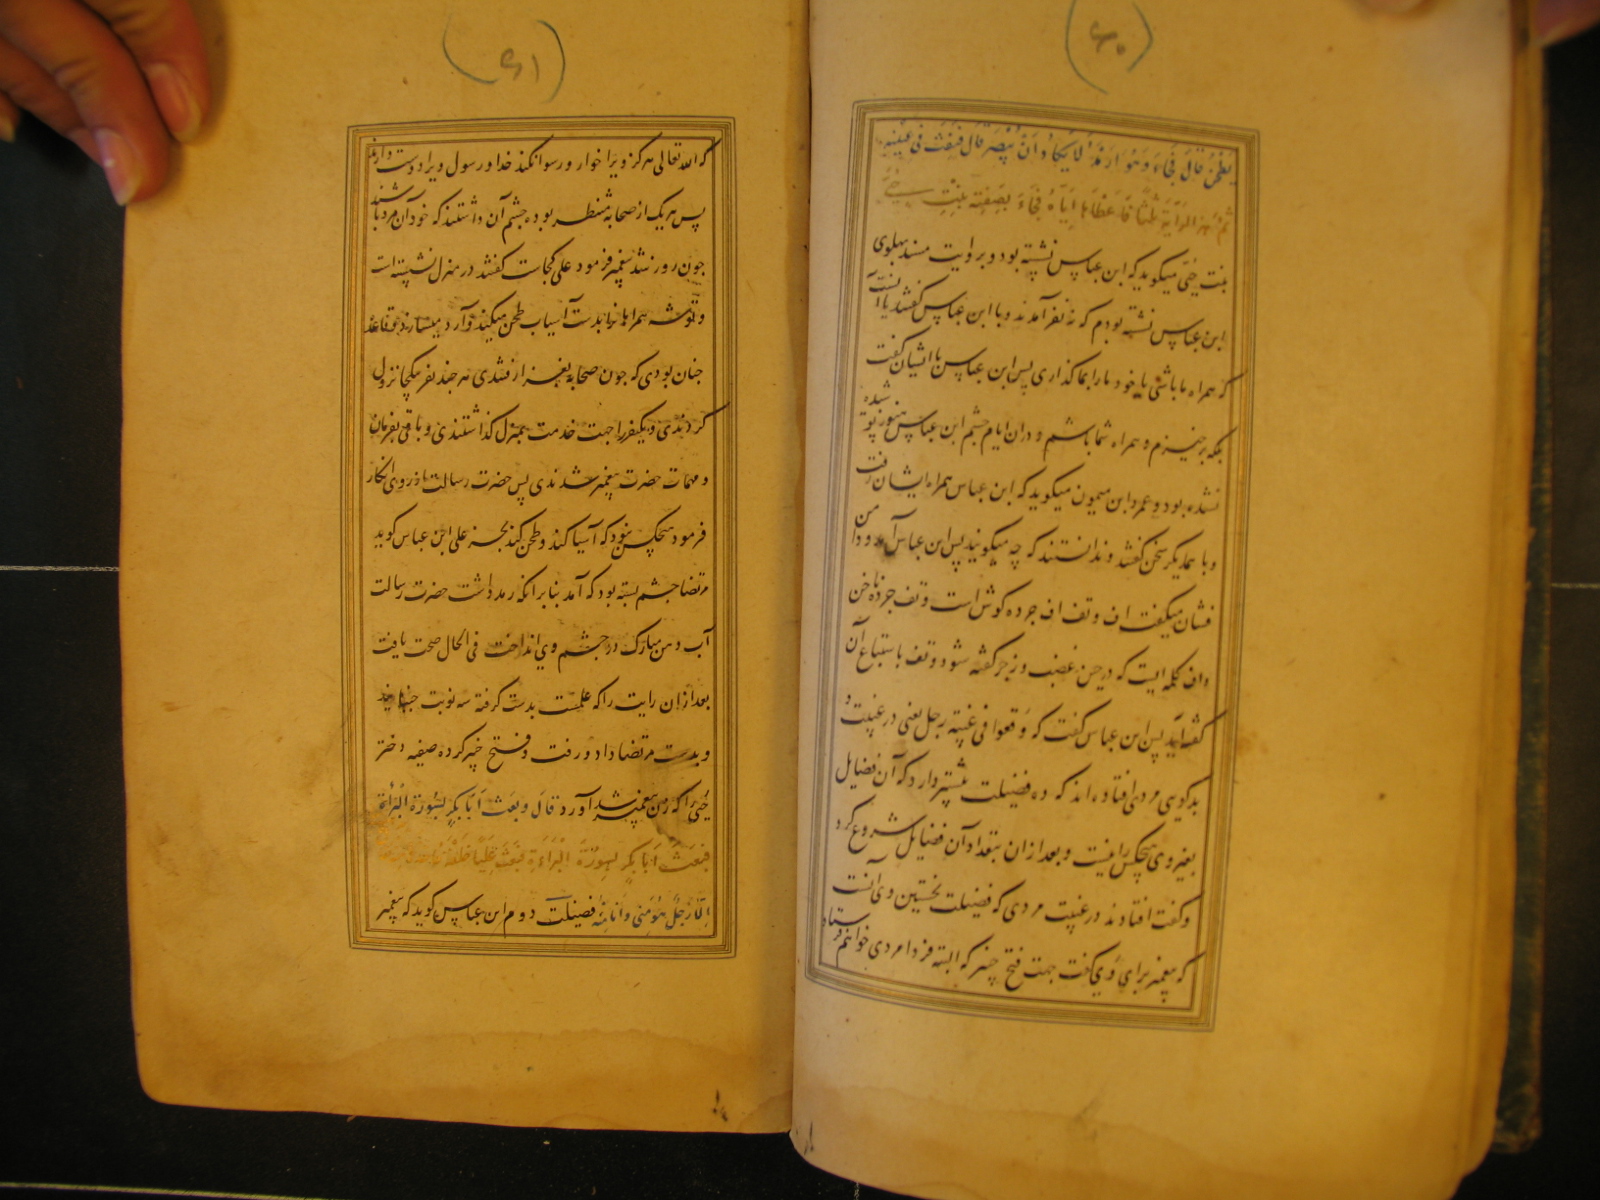 (۶۰)
یطحن قال فجاء و هو ارمد لا یکاد ان یبصر قال فنفث فی عینیه
ثم هز الرایة ثلثا فاعطاها ایاه فجاء بصفیة بنت حیی
بنت حیی میکوید که ابن عباس نشسته بود و بروایت مسند بهلوی
ابن عباس نشسته بودم که نه نفر آمدند و با ابن عباس کفتند یا آنست
که همراه ما باشی یا خود ما را بما کذاری پس ابن عباس با ایشان کفت
بلکه برخیزم و همراه شما باشم و دران ایام چشم ابن عباس هنوز پوشیده
نشده بود و عمرو ابن میمون میکوید که ابن عباس همراه ایشان رفت
و با همدیکر سخن کفتند و ندانستند که چه میکویند پس ابن عباس آمد و دامن
فشان میکفت اف و تف اف جرده کوش است و تف جرده ناخن
و اف کلمه ایست که در حین غضب و زجر کفته شود و تف باستتباع آن
کفته آید پس ابن عباس کفت که وقعوا فی غیبة رجل یعنی در غیبت و
بدکویی مردی افتاده اند که ده فضیلت بیشتر دارد که آن فضایل
بغیر وی هیچکس را نیست و بعد از ان بتعداد آن فضایل شروع کرد
و کفت افتادند در غیبت مردی که فضیلت نخستین وی آنست
که پیغمبر برای وی کفت جهت فتح خیبر که البته فردا مردی خواهم فرستاد
(۶۱)
که الله تعالی هرکز ویرا خوار و رسوا نکند خدا و رسول ویرا دوست دارند
پس هر یک از صحابه منتظر بوده چشم آن داشتند که خود آن مرد باشند
چون روز شد پیغمبر فرمود علی کجاست کفتند در منزل نشسته است
و توشه همراهانرا بدست آسیاب طحن میکند و آرد میسازد و قاعده
چنان بودی که چون صحابه بغزا رفتندی هر چند نفر یکجا نزول
کردندی و یکنفر را جهت خدمت بمنزل کذاشتندی و باقی بفرمان
و مهمات حضرت پیغمبر شدندی پس حضرت رسالت از روی انکار
فرمود هیچکس نبود که آسیا کند و طحن کند بجز علی ابن عباس کوید
مرتضا چشم بسته بود که آمد بنابر آنکه رمد داشت حضرت رسالت
آب دهن مبارک در چشم وی انداخت فی الحال صحت یافت
بعد از ان رایت را که علمست بدست کرفته سه نوبت جنبانید
و بدست مرتضا داد و رفت و فتح خیبر کرده صفیه دختر
حیی را که زن پیغمبر شد آورد قال و بعث ابابکر بسورة البراءة
فبعث ابابکر بسورة البراءة فبعث علیا خلفه
الا رجل هو منی و انا منه فضیلت دوم ابن عباس کوید که پیغمبر